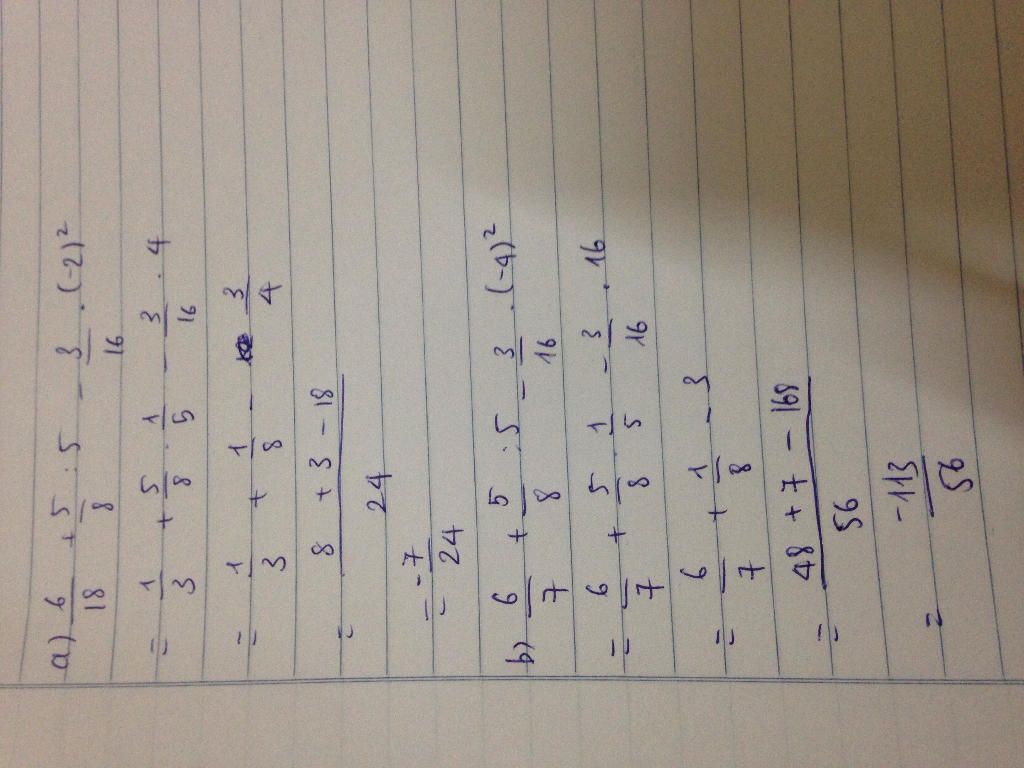 a) 6/18 + 5/8 : 5 - 3/16 . (-2)²
= 1/3 + 5/8 . 1/5 - 3/16 . 4
= 1/3 + 1/8 - 3/4
= (8 + 3 - 18)/24
= -7/24
b) 6/7 + 5/8 : 5 - 3/16 . (-4)²
= 6/7 + 5/8 . 1/5 - 3/16 . 16
= 6/7 + 1/8 - 3
= (48 + 7 - 168)/56
= -113/56